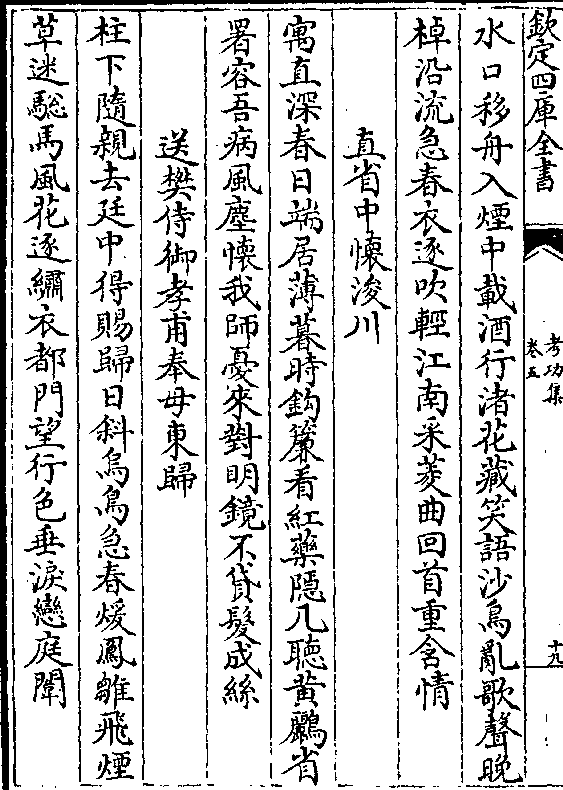 欽定四庫全書
考功集
卷五
十九
水口移舟入煙中載酒行渚花藏笑語沙鳥亂歌聲晚
棹沿流急春衣逐吹輕江南采菱曲回首重含情
直省中懷浚川
寓直深春日端居薄暮時鈎簾看紅藥隱几聽黃鸝省
署容吾病風塵懷我師憂來對明鏡不貸髮成絲
送樊侍御孝甫奉母東歸
柱下隨親去廷中得賜歸日斜烏鳥急春煖鳳雛飛煙
草迷驄馬風花逐繡衣都門望行色垂淚戀庭闈